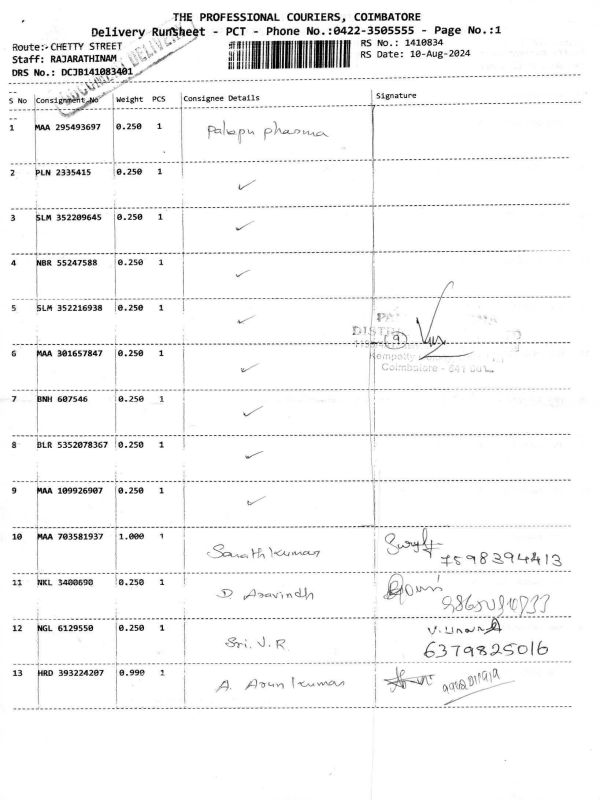 THE PROFESSIONAL COURIERS, COIMBATORE
Delivery Runsheet - PCT - Phone No.:0422-3505555 - Page No.:1
Route:- CHETTY STREET
RS No.: 1410834
Staff: RAJARATHINAM
RS Date: 10-Aug-2024
DRS No.: DCJB141083401
S No Consignment No Weight PCS Consignee Details Signature
1 MAA 295493697 0.250 1
2 PLN 2335415 0.250 1 ✓
3 SLM 352209645 0.250 1 ✓
4 NBR 55247588 0.250 1 ✓
5 SLM 352216938 0.250 1 ✓
DISTRI
9
6 MAA 301657847 0.250 1 ✓
Coimbatore - 641
7 BNH 607546 0.250 1 ✓
8 BLR 5352078367 0.250 1 ✓
9 MAA 109926907 0.250 1 ✓
10 MAA 703581937 1.000 1 Sarathkumar
7598394413
11 NKL 3400690 0.250 1 D Aravindh
12 NGL 6129550 0.250 1 Sri. V. R.
6379825016
13 HRD 393224207 0.990 1 A. Arunkumar